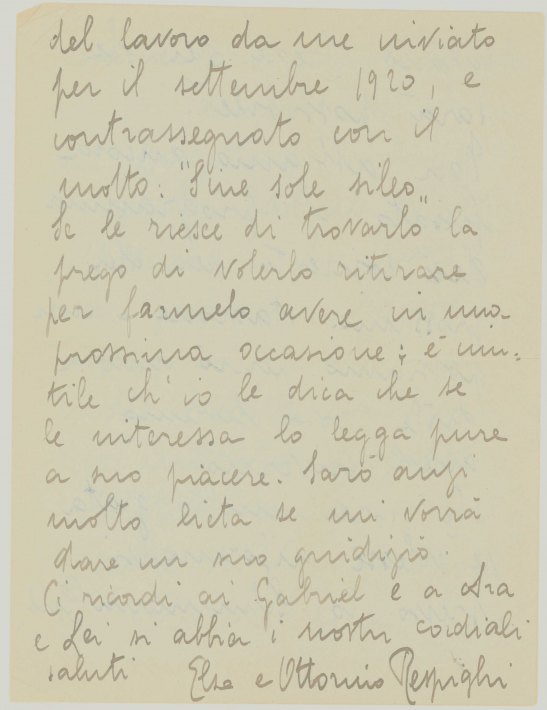 del lavoro da me inviato
per il settembre 1920, e
contrassegnato con il
motto: "Sine sole sileo„
Se le riesce di trovarlo la
prego di volerlo ritirare
per farmelo avere in una
prossima occasione; è inu-
tile ch'io le dica che se
le interessa lo legga pure
a suo piacere. Sarò anzi
molto lieta se mi vorrà
dare un suo giudizio.
Ci ricordi ai Gabriel e a
e Lei si abbia i nostri cordiali
saluti Elsa e Ottorino Respighi